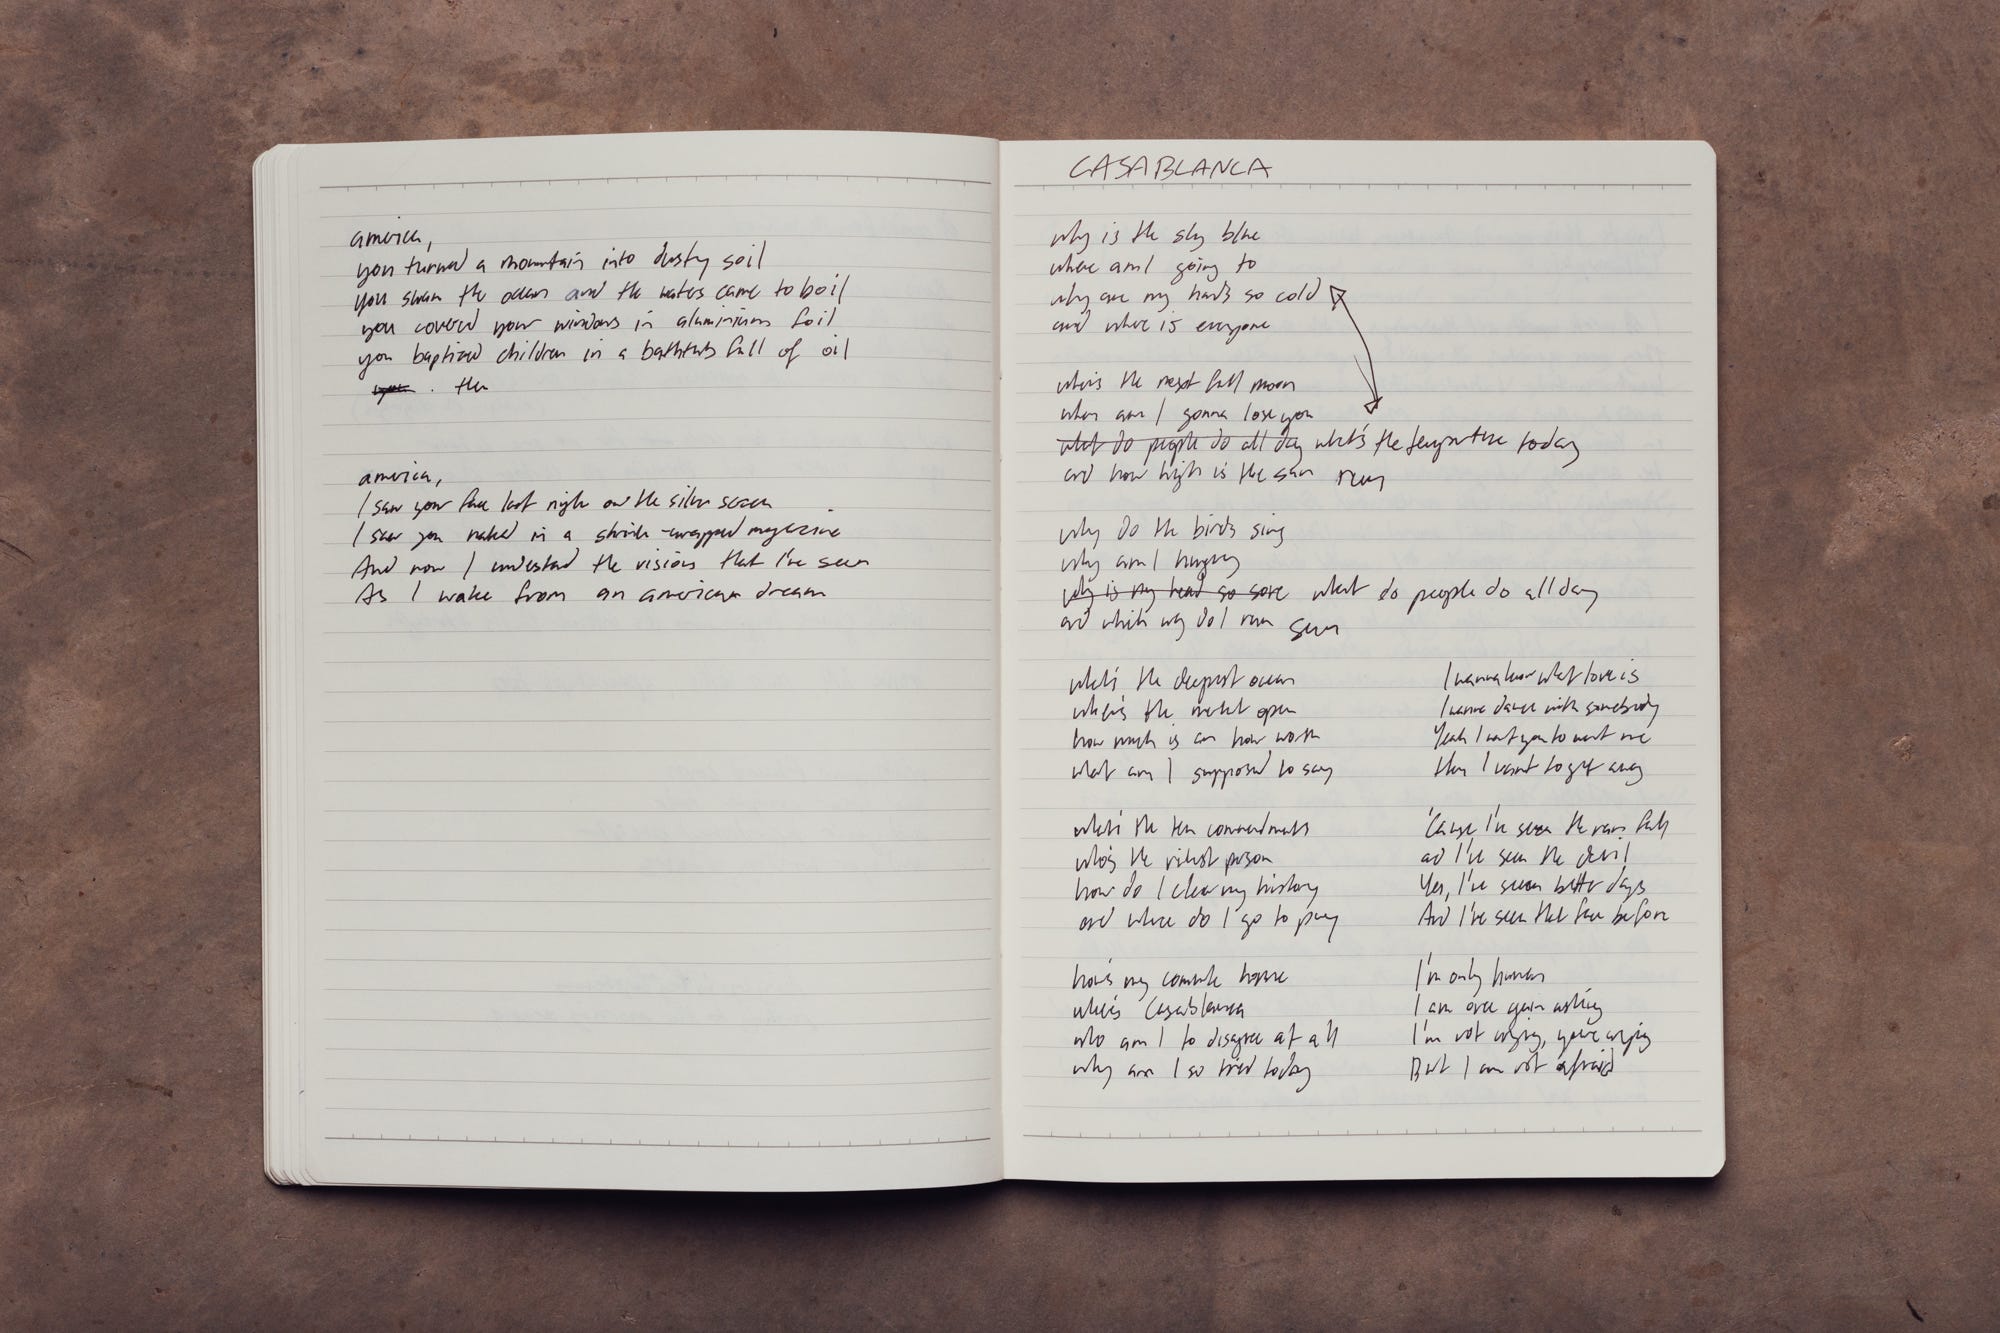 america,
you turned a mountain into dusty soil
you swam the ocean and the waters came to boil
you covered your windows in aluminium foil
you baptized children in a bathtub full of oil
you . the
america,
I saw your face last night on the silver screen
I saw you naked in a shrink-wrapped magazine
And now I understand the visions that I've seen
As I wake from an american dream
CASABLANCA
why is the sky blue
where am I going to
why are my hands so cold
and where is everyone
when's the next full moon
when am I gonna lose you
what do people do all day what's the temperature today
and how high is the sun run
why do the birds sing
why am I hungry
why is my head so sore what do people do all day
and which way do I run sun
what's the deepest ocean
where's the market open
how much is an hour worth
what am I supposed to say
what's the ten commandments
who's the richest person
how do I clear my history
and where do I go to pray
how's my commute home
where's Casablanca
who am I to disagree at all
why am I so tired today
I wanna know what love is
I wanna dance with somebody
Yeah I want you to want me
then I want to get away
'Cause I've seen the rain fall
and I've seen the devil
Yes, I've seen better days
And I've seen that face before
I'm only human
I am once again asking
I'm not crying, you're crying
But I am not afraid